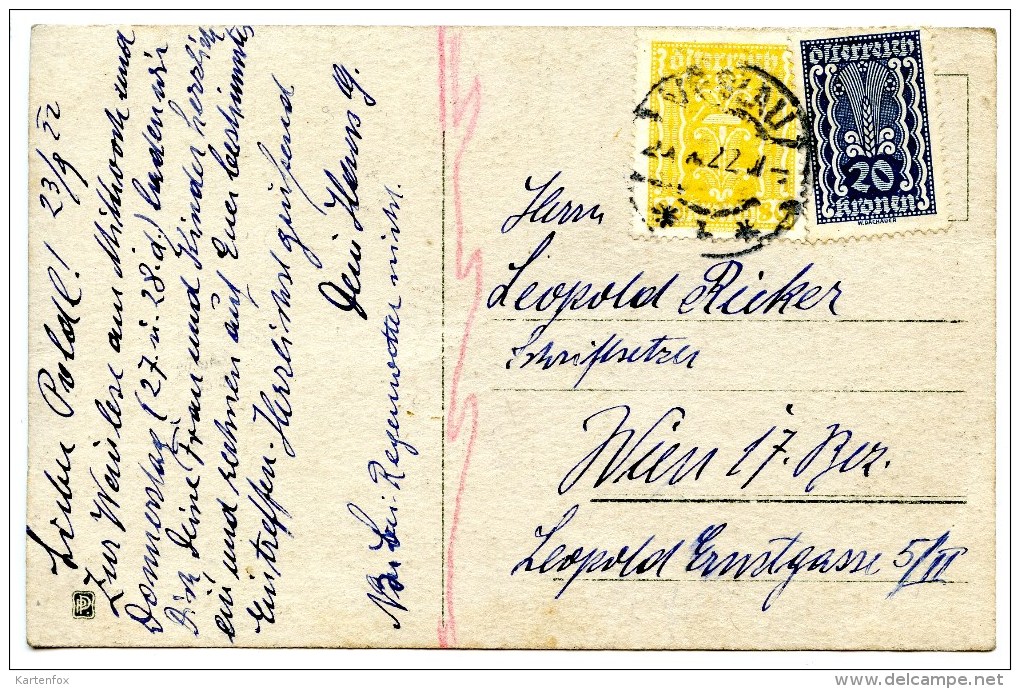 Lieber Poldl! 23/9 22
Zur Weinlese am Mittwoch und
Donnerstag (27. u. 28. d.) laden wir
Dich, Deine Frau und Kinder herzlich
ein und rechnen auf Euer bestimmtes
Eintreffen. Herzlichst grüssend
Dein Hans G.
Nur bei Regenwetter nicht.
österreich
österreich
20
kronen
VÖSLAU
22
* 1 *
Herrn
Leopold Ricker
Schriftsetzer
Wien 17. Bez.
Leopold Ernstgasse 5/II
PP
Kartenfox
delcampe.net